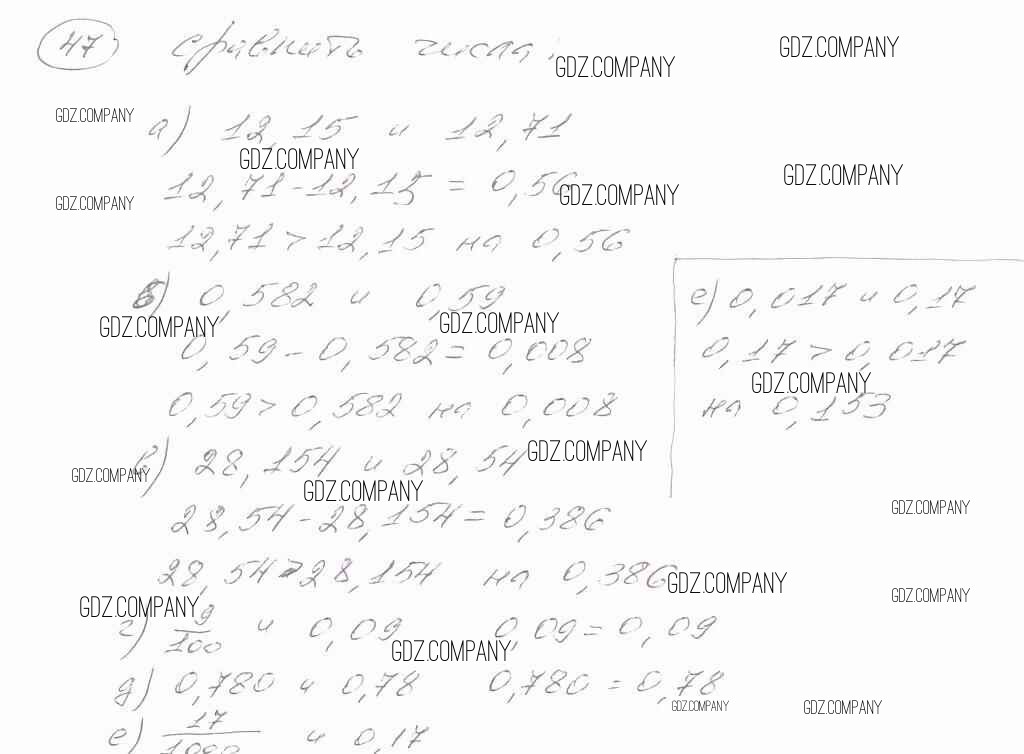 47 сравнить числа:
GDZ.COMPANY
GDZ.COMPANY
GDZ.COMPANY
а) 12,15 и 12,71
GDZ.COMPANY
GDZ.COMPANY
12,71-12,15 = 0,56
GDZ.COMPANY
GDZ.COMPANY
12,71 > 12,15 на 0,56
б) 0,582 и 0,59
GDZ.COMPANY
GDZ.COMPANY
0,59 - 0,582 = 0,008
0,59 > 0,582 на 0,008
в) 28,154 и 28,54
GDZ.COMPANY
GDZ.COMPANY
GDZ.COMPANY
28,54 - 28,154 = 0,386
28,54 > 28,154 на 0,386
GDZ.COMPANY
GDZ.COMPANY
г) 9/100 и 0,09 0,09 = 0,09
GDZ.COMPANY
д) 0,780 и 0,78 0,780 = 0,78
GDZ.COMPANY
GDZ.COMPANY
е) 17/1000 и 0,17
е) 0,017 и 0,17
0,17 > 0,017
GDZ.COMPANY
на 0,153
GDZ.COMPANY
GDZ.COMPANY